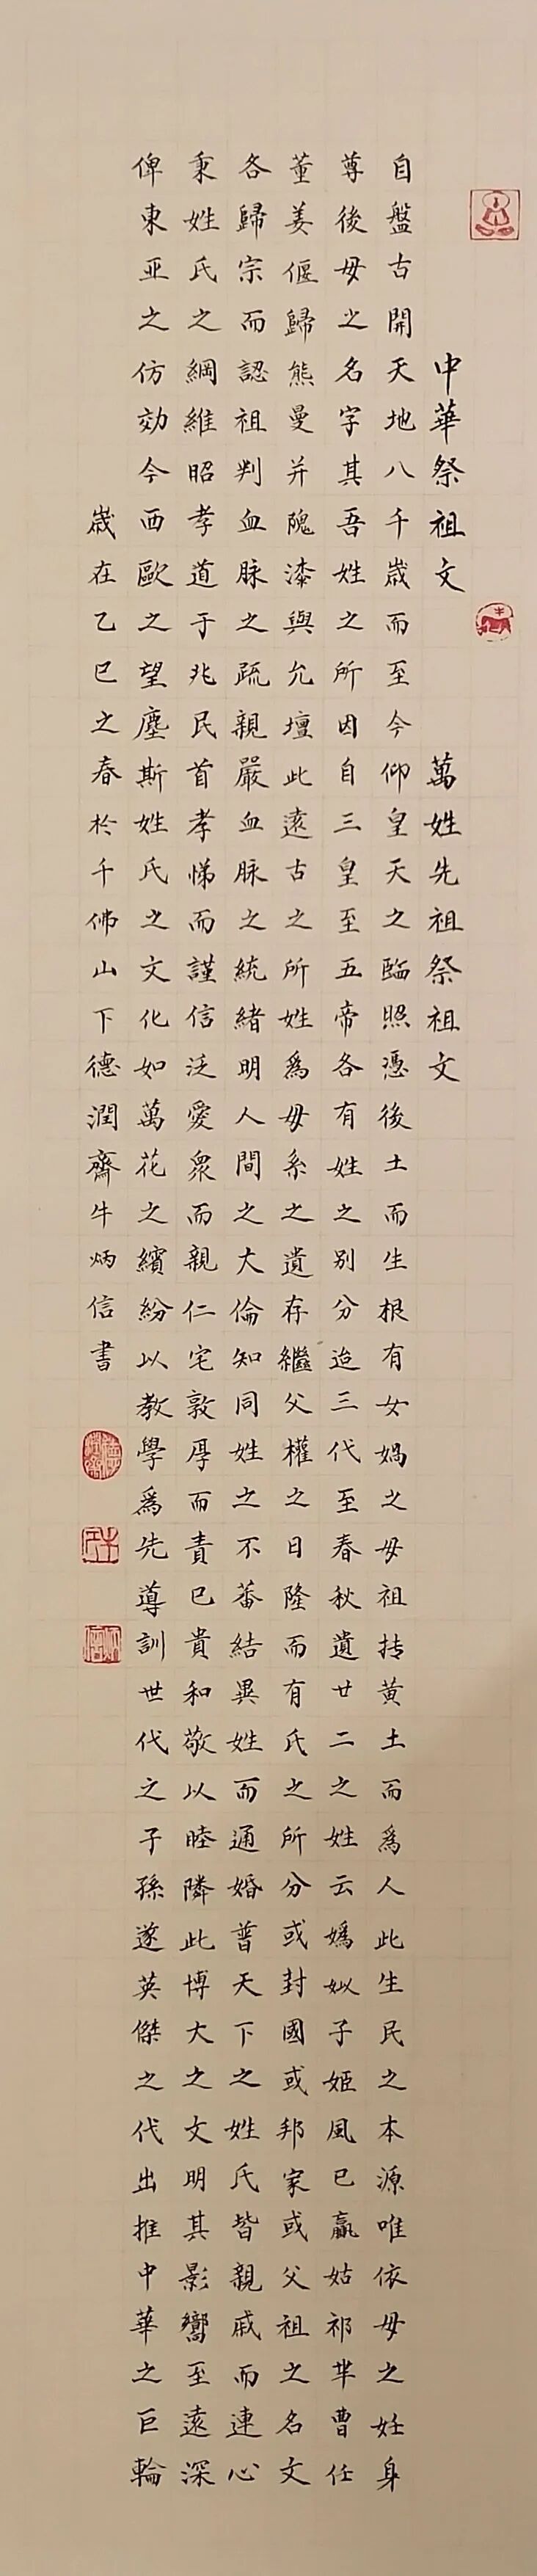 中華祭祖文 萬姓先祖祭祖文
自盤古開天地八千歲而至今仰皇天之臨照憑後土而生根有女媧之母祖抟黃土而爲人此生民之本源唯依母之妊身
尊後母之名字其吾姓之所因自三皇至五帝各有姓之別分迨三代至春秋遺廿二之姓云嬀姒子姬風已贏姑祁芈曹任
董姜偃歸熊曼并隗漆與允壇此遠古之所姓爲母系之遺存繼父權之日隆而有氏之所分或封國或邦家或父祖之名文
各歸宗而認祖判血脉之疏親嚴血脉之統緒明人間之大倫知同姓之不蕃結異姓而通婚普天下之姓氏皆親戚而連心
秉姓氏之綱維昭孝道于兆民首孝悌而謹信泛愛衆而親仁宅敦厚而責已貴和敬以睦隣此博大之文明其影嚮至遠深
俾東亚之仿効今西歐之望塵斯姓氏之文化如萬花之繽紛以教學爲先導訓世代之子孫遂英傑之代出推中華之巨輪
歲在乙巳之春於千佛山下德潤齋牛炳信書